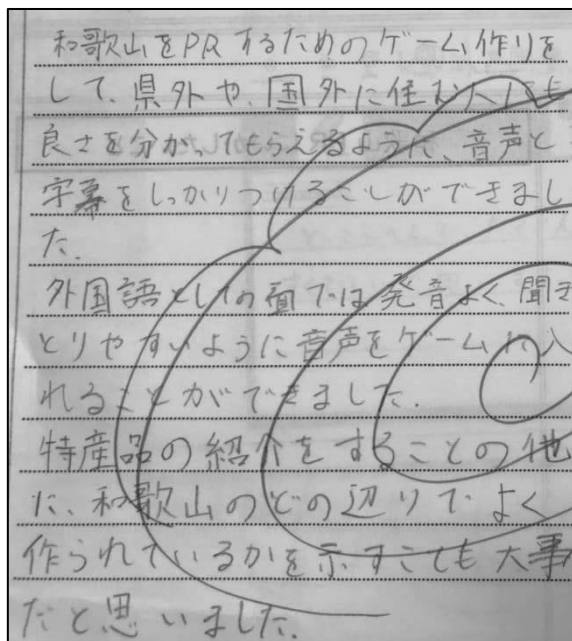 和歌山をPRするためのゲーム作りを
して、県外や、国外に住む人にも
良さを分かってもらえるように、音声と
字幕をしっかりつけることができまし
た。
外国語としての面では発音よく、聞き
とりやすいように音声をゲームに入
れることができました。
特産品の紹介をすることの他
に、和歌山のどの辺りでよく
作られているかを示すことも大事
だと思いました。